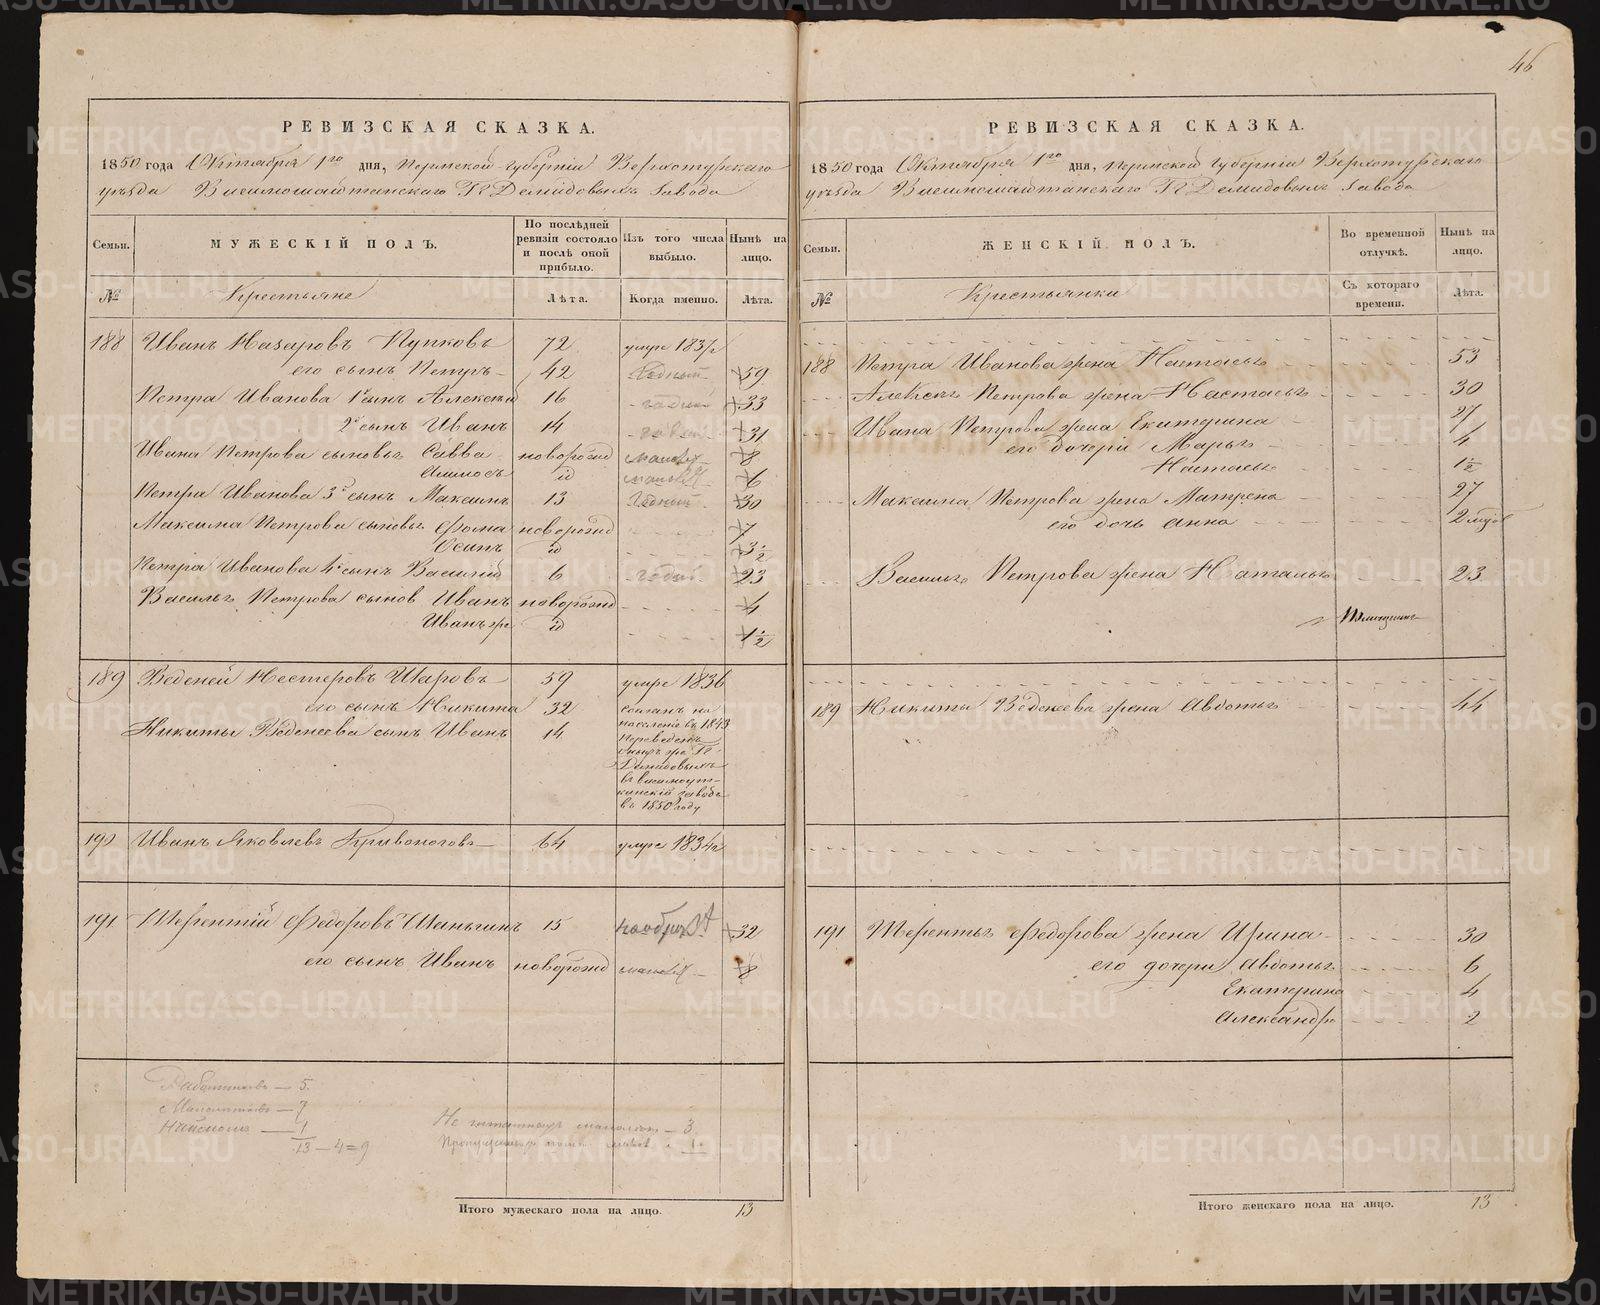 46
РЕВИЗСКАЯ СКАЗКА.
1850 года Октября 1го дня, Пермской Губерніи Верхотурскаго
уѣзда Висимошайтанскаго Гг Демидовыхъ Завода
Семьи.
МУЖЕСКІЙ ПОЛЪ.
По послѣдней ревизіи состояло и послѣ оной прибыло.
Изъ того числа выбыло.
Нынѣ на лицо.
№
Крестьяне
Лѣта.
Когда именно.
Лѣта.
188 Иванъ Назаровъ Пупковъ 72 умре 183
его сынъ Петръ 42 Годный 59
Петра Иванова 1й сынъ Алексѣй 16 годный 33
2й сынъ Иванъ 14 31
Ивана Петрова сыновья Савва новорожд малол 8
Амносъ id малол 6
Петра Иванова 3й сынъ Максимъ 13 Годный 30
Максима Петрова сыновья Фома новорожд 7
Осипъ id 3 1/2
Петра Иванова 4й сынъ Василій 6 годный 23
Василья Петрова сынов Иванъ новорожд 4
Иванъ же id 1 1/2
189 Веденей Нестеровъ Шаровъ 59 умре 1836
его сынъ Никита 32 сосланъ на
поселеніе въ 1843
Никиты Веденеева сынъ Иванъ 14 переведенъ
Гг
Демидовыхъ
въ висимоут-
кинскій заводъ
въ 1850 году
190 Иванъ Яковлевъ Кривоноговъ 64 умре 1834
191 Терентій Федоровъ Шаньгинъ 15 32
его сынъ Иванъ новорожд малол 8
Работниковъ — 5
Малолѣтковъ — 7
1
13 — 4 = 9
Не малол — 3
1
Итого мужескаго пола на лицо. 13
РЕВИЗСКАЯ СКАЗКА.
1850 года Октября 1го дня, Пермской Губерніи Верхотурскаго
уѣзда Висимошайтанскаго Гг Демидовыхъ Завода
Семьи.
ЖЕНСКІЙ ПОЛЪ.
Во временной отлучкѣ.
Нынѣ на лицо.
№
Крестьянки
Съ котораго времени.
Лѣта.
188 Петра Иванова жена Настасья 53
Алексѣя Петрова жена Настасья 30
Ивана Петрова жена Екатерина 27
его дочери Марья 4
Настасья 1 1/2
Максима Петрова жена Матрена 27
его дочь Анна 2
Василья Петрова жена Наталья 23
189 Никиты Веденеева жена Авдотья 44
191 Терентья Федорова жена Ирина 30
его дочери Авдотья 6
Екатерина 4
Александра 2
Итого женскаго пола на лицо. 13
METRIKI.GASO-URAL.RU